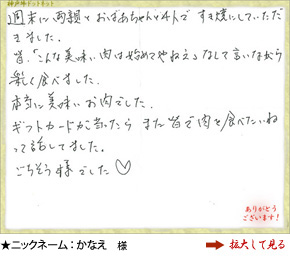 神戸牛ドットネット
週末に両親とおばあちゃんと4人ですき焼にしていただ
きました。
皆、「こんな美味い肉は始めてやねえ」なんて言いながら
楽しく食べました。
本当に美味いお肉でした。
ギフトカードが当ったら また皆で肉を食べたいね
って話してました。
ごちそう様でした♡
ありがとう
ございます!
★ニックネーム：かなえ 様
➡拡大して見る